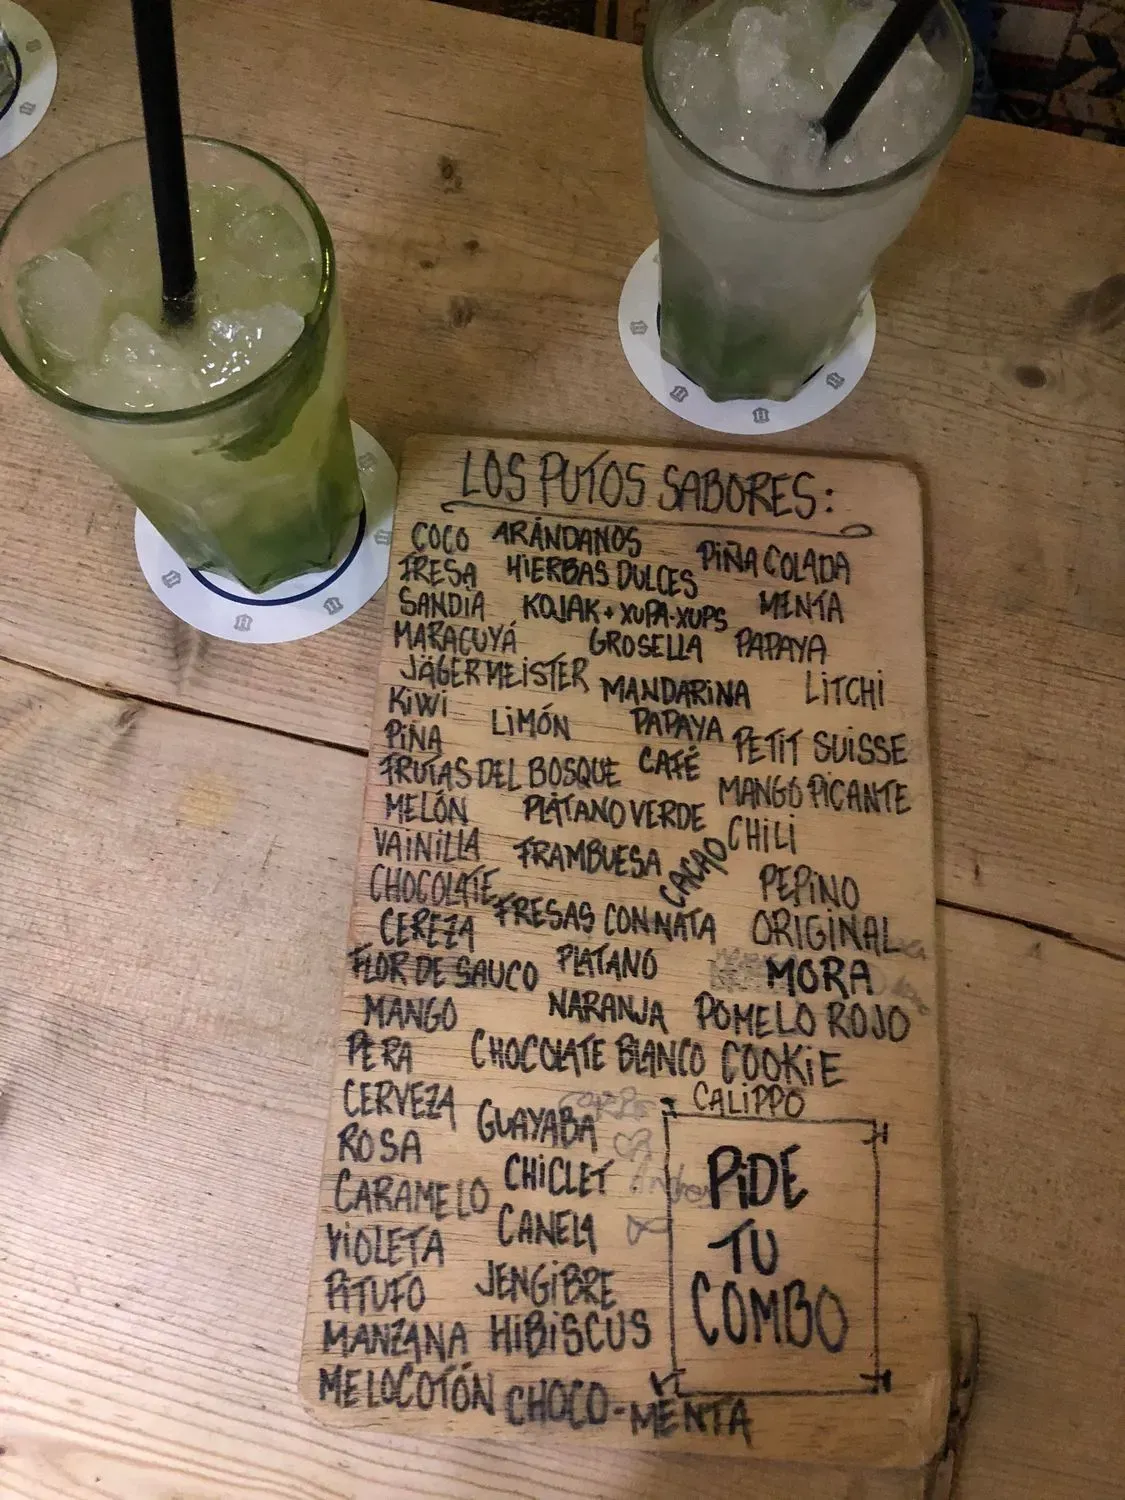 LOS PUTOS SABORES:
COCO ARÁNDANOS PIÑA COLADA
FRESA HIERBAS DULCES
SANDÍA KOJAK + XUPA-XUPS MENTA
MARACUYÁ GROSELLA PAPAYA
JÄGERMEISTER MANDARINA LITCHI
KIWI LIMÓN PAPAYA
PIÑA CAFÉ PETIT SUISSE
FRUTAS DEL BOSQUE MANGO PICANTE
MELÓN PLÁTANO VERDE CHILI
VAINILLA FRAMBUESA CACAO
CHOCOLATE PEPINO
CEREZA FRESAS CON NATA ORIGINAL
FLOR DE SAUCO PLATANO MORA
MANGO NARANJA POMELO ROJO
PERA CHOCOLATE BLANCO COOKIE
CERVEZA GUAYABA CALIPPO
ROSA CHICLET
CARAMELO CANELA
VIOLETA JENGIBRE
PITUFO
MANZANA HIBISCUS
MELOCOTÓN CHOCO-MENTA
PIDE
TU
COMBO